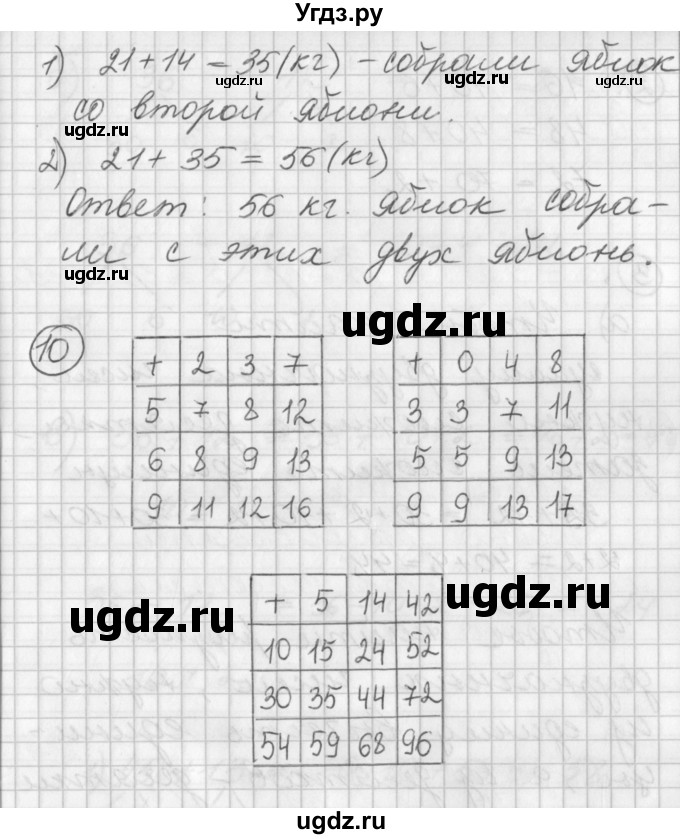 Угдз.ру
1) 21+14=35(кг) - собрали яблок
со второй яблони.
2) 21+35=56(кг)
Ответ: 56 кг. яблок собра-
ли с этих двух яблонь.
ugdz.ru
ugdz.ru
ugdz.ru
ugdz.ru
ugdz.ru
ugdz.ru
ugdz.ru
10
+ 2 3 7
5 7 8 12
6 8 9 13
9 11 12 16
+ 0 4 8
3 3 7 11
5 5 9 13
9 9 13 17
ugdz.ru
ugdz.ru
+ 5 14 42
10 15 24 52
30 35 44 72
54 59 68 96
ugdz.ru